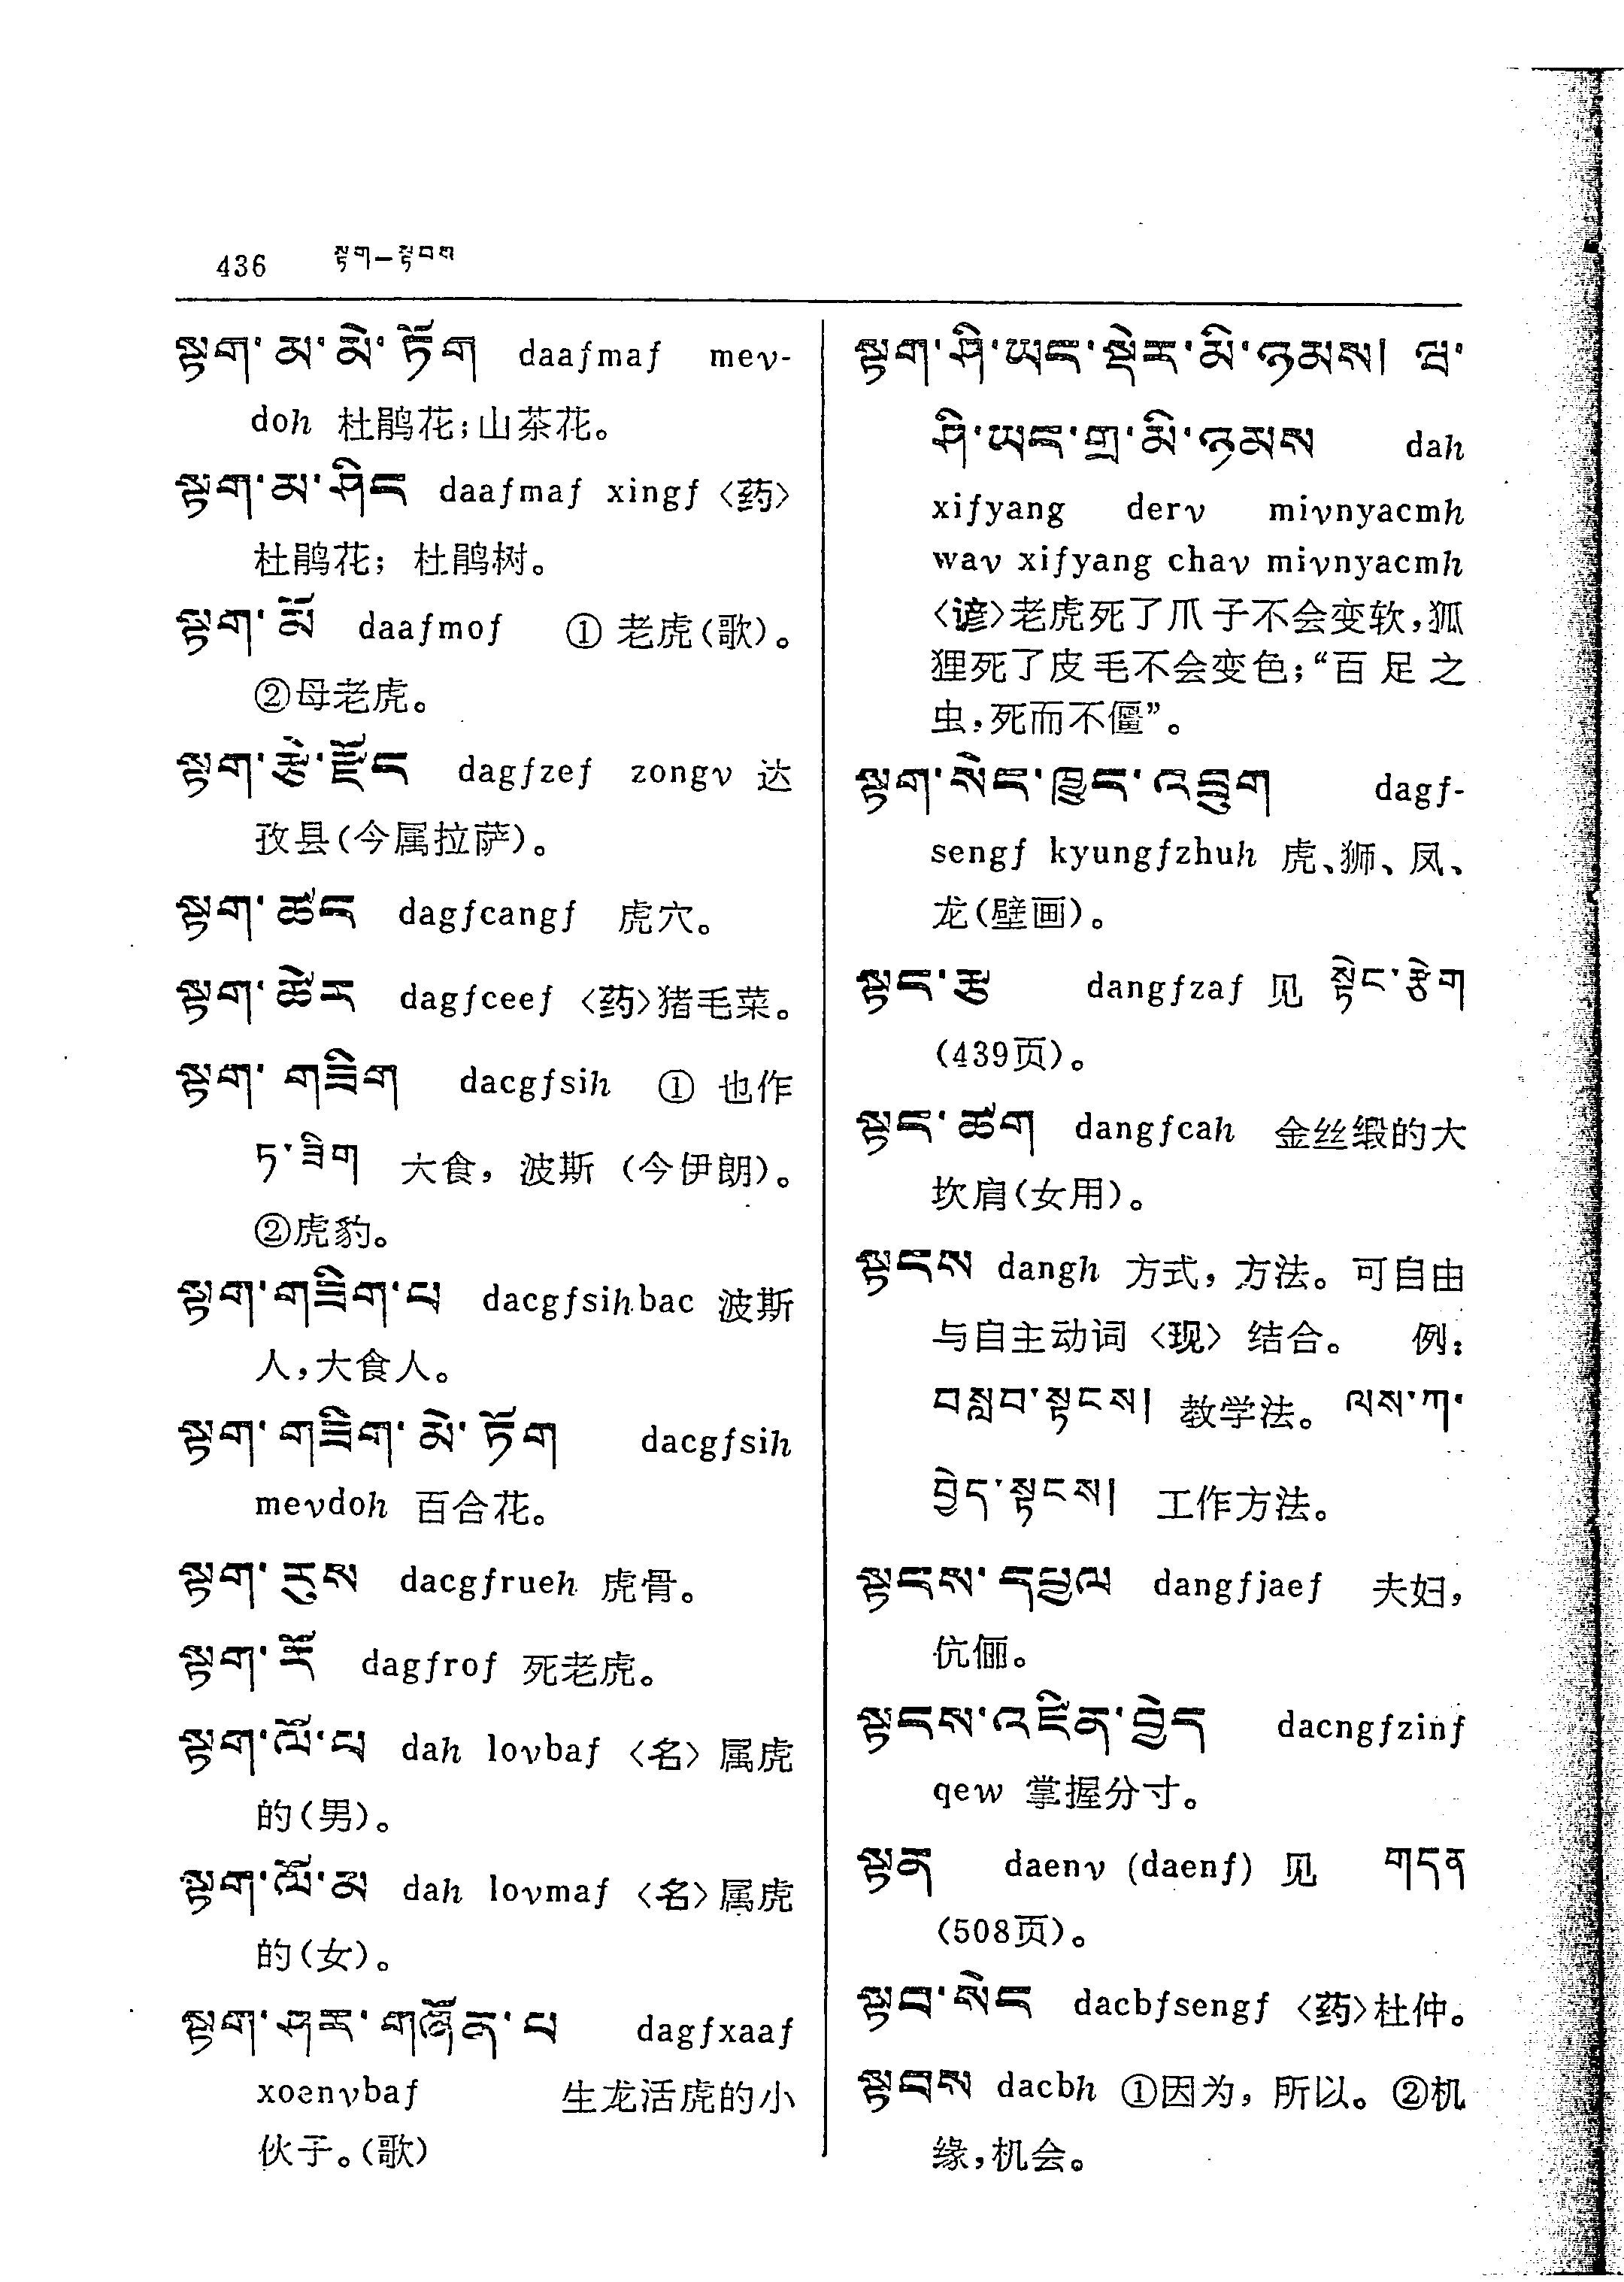 436 སྟག—སྟབས
སྟག་མ་མེ་ཏོག daafmaf mev-
doh 杜鹃花;山茶花。
སྟག་མ་ཤིང daafmaf xingf〈药〉
杜鹃花；杜鹃树。
སྟག་མོ daafmof ①老虎(歌)。
②母老虎。
སྟག་རྩེ་རྫོང dagfzef zongv 达
孜县(今属拉萨)。
སྟག་ཚང dagfcangf 虎穴。
སྟག་ཚེར dagfceef〈药〉猪毛菜。
སྟག་གཟིག dacgfsih ①也作
ཏ་ཟིག 大食，波斯（今伊朗）。
②虎豹。
སྟག་གཟིག་པ dacgfsihbac 波斯
人,大食人。
སྟག་གཟིག་མེ་ཏོག dacgfsih
mevdoh 百合花。
སྟག་རུས dacgfrueh 虎骨。
སྟག་རོ dagfrof 死老虎。
སྟག་ལོ་པ dah lovbaf〈名〉属虎
的(男)。
སྟག་ལོ་མ dah lovmaf〈名〉属虎
的(女)。
སྟག་ཤར་གཞོན་པ dagfxaaf
xoenvbaf 生龙活虎的小
伙子。(歌)
སྟག་ཤི་ཡང་སྡེར་མི་ཉམས། ཝ་
ཤི་ཡང་གྲ་མི་ཉམས dah
xifyang derv mivnyacmh
wav xifyang chav mivnyacmh
〈谚〉老虎死了爪子不会变软,狐
狸死了皮毛不会变色;“百足之
虫,死而不僵”。
སྟག་སེང་ཁྱུང་འབྲུག dagf-
sengf kyungfzhuh 虎、狮、凤、
龙(壁画)。
སྟང་རྩ dangfzaf 见 སྟེང་རྩེག
(439页)。
སྟང་ཚག dangfcah 金丝缎的大
坎肩(女用)。
སྟངས dangh 方式，方法。可自由
与自主动词〈现〉结合。 例：
བསླབ་སྟངས། 教学法。 ལས་ཀ་
བྱེད་སྟངས། 工作方法。
སྟངས་དཔྱལ dangfjaef 夫妇，
伉俪。
སྟངས་འཛིན་བྱེད dacngfzinf
qew 掌握分寸。
སྟན daenv (daenf) 见 གདན
(508页)。
སྟབ་སེང dacbfsengf〈药〉杜仲。
སྟབས dacbh ①因为，所以。②机
缘,机会。